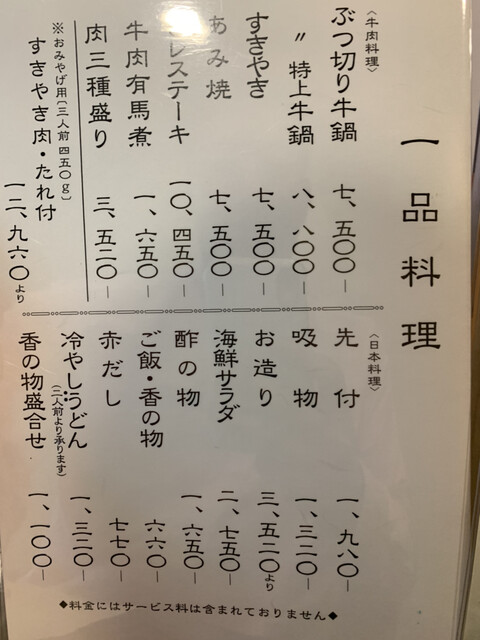 一品料理
〈牛肉料理〉
ぶつ切り牛鍋 七、五〇〇―
〃 特上牛鍋 八、八〇〇―
すきやき 七、五〇〇―
あみ焼 七、五〇〇―
レステーキ 一〇、四五〇―
牛肉有馬煮 一、六五〇―
肉三種盛り 三、五二〇―
※おみやげ用〔三人前 四五〇g〕
すきやき肉・たれ付 一二、九六〇より
〈日本料理〉
先付 一、九八〇―
吸物 一、三二〇―
お造り 三、五二〇より
海鮮サラダ 二、七五〇―
酢の物 一、六五〇―
ご飯・香の物 六六〇―
赤だし 七七〇―
冷やしうどん 一、三二〇―
(二人前より承ります)
香の物盛合せ 一、一〇〇―
◆料金にはサービス料は含まれておりません◆